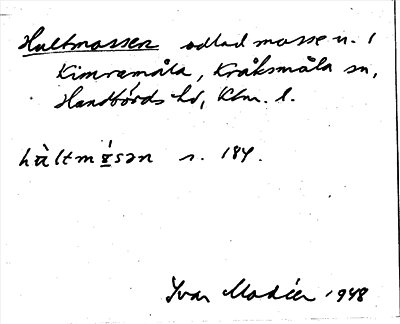 Hultmossen odlad mosse u. 1
Kimramåla, Kråksmåla sn,
Handbörds hd, Klm. l.
hùltmósən s. 184.
Ivar Modéer 1948